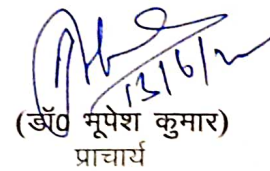 13/6/2
(डॉ0 मूपेश कुमार)
प्राचार्य